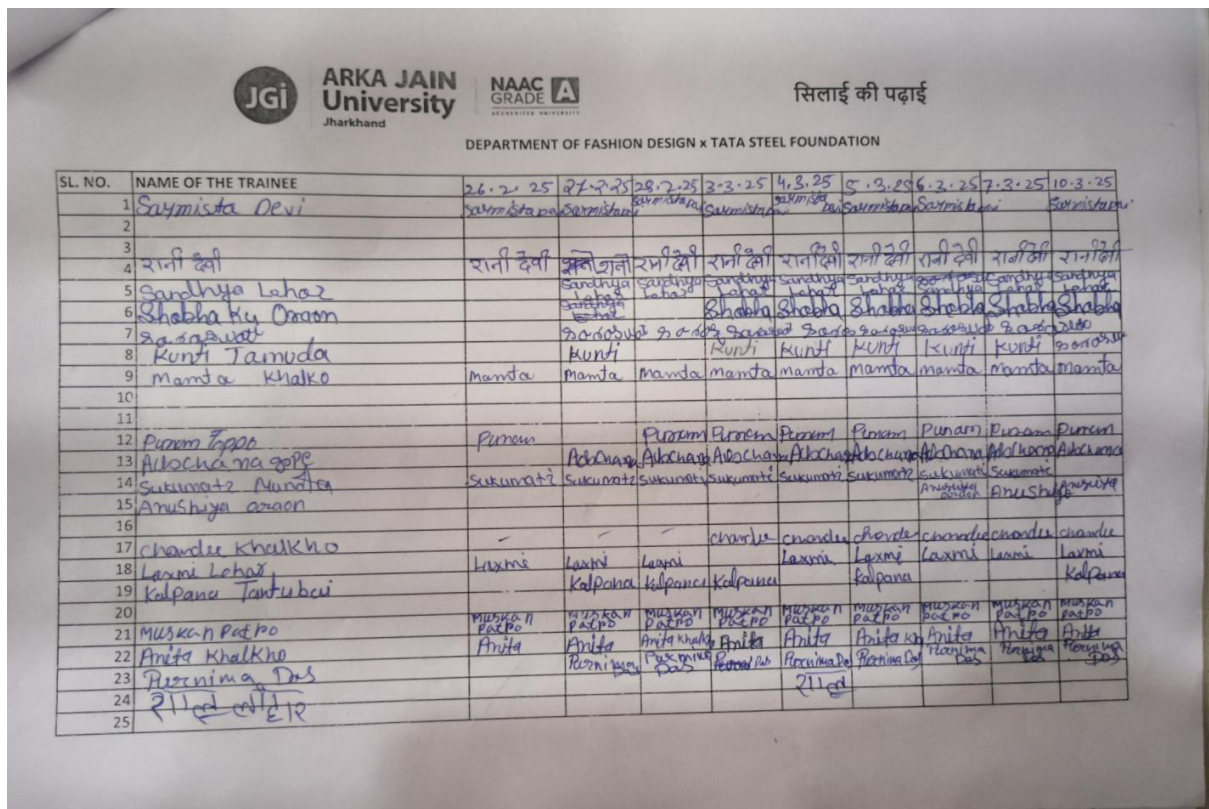 JGi ARKA JAIN University Jharkhand NAAC GRADE A ACCREDITED UNIVERSITY सिलाई की पढ़ाई
DEPARTMENT OF FASHION DESIGN x TATA STEEL FOUNDATION
SL. NO. NAME OF THE TRAINEE 26.2.25 27.2.25 28.2.25 3.3.25 4.3.25 5.3.25 6.3.25 7.3.25 10.3.25
1 Sarmista Devi
2
3
4 रानी देवी रानी देवी रानी रानी देवी रानी देवी रानी देवी रानी देवी रानी देवी रानी देवी रानी देवी
5 Sandhya Lohar Sandhya Lohar Sandhya Lohar Sandhya Lohar Sandhya Lohar Sandhya Lohar Sandhya Lohar Sandhya Lohar Sandhya Lohar
6 Shobha Ku Oraon Shobha Shobha Shobha Shobha Shobha Shobha
7 Saraswati
8 Kunti Tamuda Kunti Kunti Kunti Kunti Kunti Kunti
9 Mamta Khalko Mamta Mamta Mamta Mamta Mamta Mamta Mamta Mamta Mamta
10
11
12 Punam Toppo Punam Punam Punam Punam Punam Punam Punam Punam
13 Adochana gope Adochana Adochana Adochana Adochana Adochana Adochana Adochana Adochana
14 Sukumati Munda Sukumati Sukumati Sukumati Sukumati Sukumati Sukumati Sukumati Sukumati
15 Anushiya oraon Anushiya oraon Anushiya
16
17 chandu Khalkho - - - chandu chandu chandu chandu chandu chandu
18 Laxmi Lohar Laxmi Laxmi Laxmi Laxmi Laxmi Laxmi Laxmi Laxmi
19 Kalpana Tantubai Kalpana Kalpana Kalpana Kalpana Kalpana
20
21 Muskan Patro Muskan Patro Muskan Patro Muskan Patro Muskan Patro Muskan Patro Muskan Patro Muskan Patro Muskan Patro Muskan Patro
22 Anita Khalkho Anita Anita Anita Khalko Anita Anita Anita Kh Anita Anita Anita
23 Purnima Das Purnima Das Purnima Das Purnima Das Purnima Das Purnima Das Purnima Das Purnima Das Purnima Das
24 शालु लोहार शालु
25